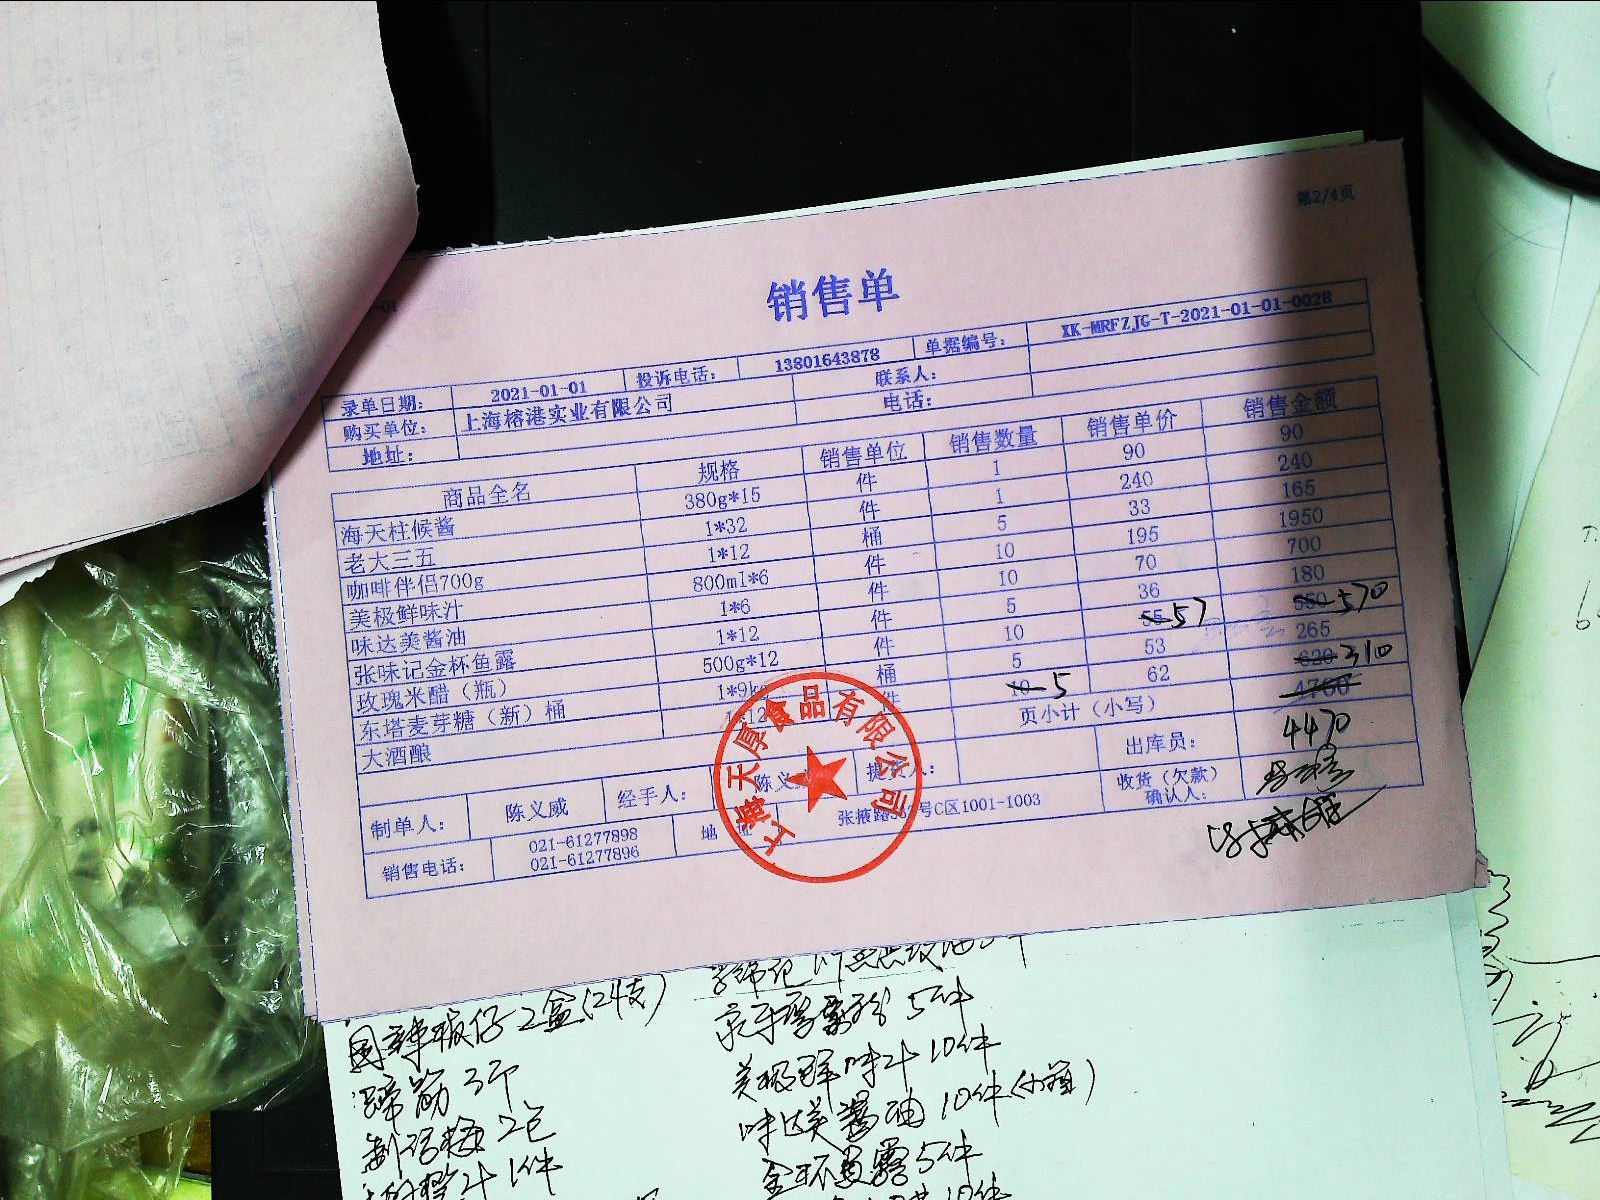 第2/4页
销售单
录单日期: 2021-01-01 投诉电话: 13801643878 单据编号: XK-MRFZJG-T-2021-01-01-0028
购买单位: 上海榕港实业有限公司 联系人:
地址: 电话:
商品全名 规格 销售单位 销售数量 销售单价 销售金额
海天柱候酱 380g*15 件 1 90 90
老大三五 1*32 件 1 240 240
咖啡伴侣700g 1*12 桶 5 33 165
美极鲜味汁 800ml*6 件 10 195 1950
味达美酱油 1*6 件 10 70 700
张味记金杯鱼露 1*12 件 5 36 180
玫瑰米醋（瓶） 500g*12 件 10 55 57 550 570
东塔麦芽糖（新）桶 1*9kg 桶 5 53 265
大酒酿 1*12 件 10 5 62 620 310
页小计（小写） 4760
4470
制单人: 陈义威 经手人: 陈义威 提货人: 出库员:
销售电话: 021-61277898 地址 张掖路 号C区1001-1003 收货（欠款）
021-61277896 确认人:
上海天厚食品有限公司
2盒(24支)
京日 粉 5件
蹄筋 3斤
美极鲜味汁 10件
2包
味达美酱油 10件(小箱)
1件
金环鱼露 5件
10件